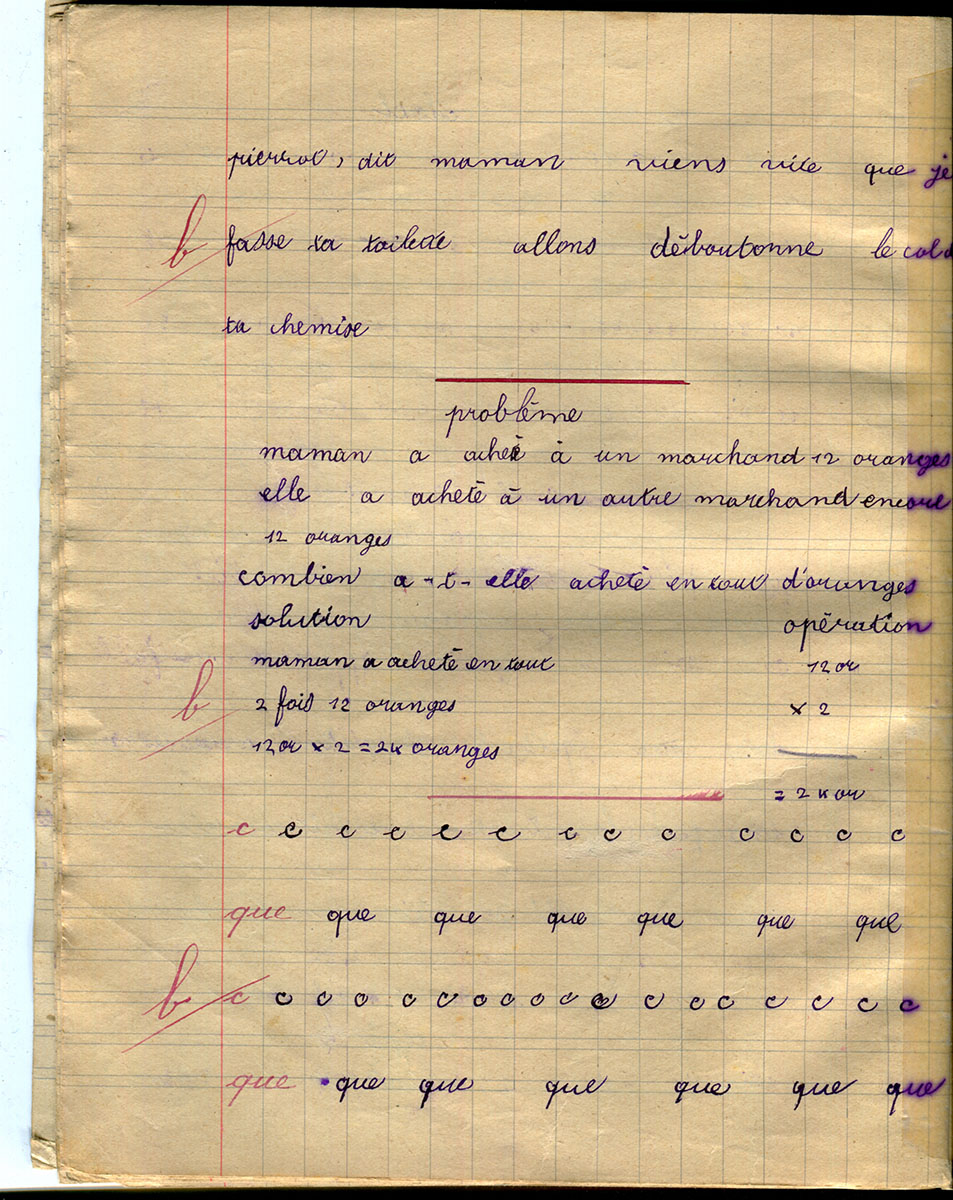 pierrot, dit maman viens vite que je
b fasse ta toilette allons déboutonne le col d
ta chemise
problème
maman a acheté à un marchand 12 oranges
elle a acheté à un autre marchand encore
12 oranges
combien a-t-elle acheté en tout d'oranges
solution opération
maman a acheté en tout 12 or
b 2 fois 12 oranges × 2
12 or × 2 = 24 oranges
= 24 or
c c c c c c c c c c c c c
que que que que que que que
b c c c c c c c c c c c c c c c c c
que que que que que que que